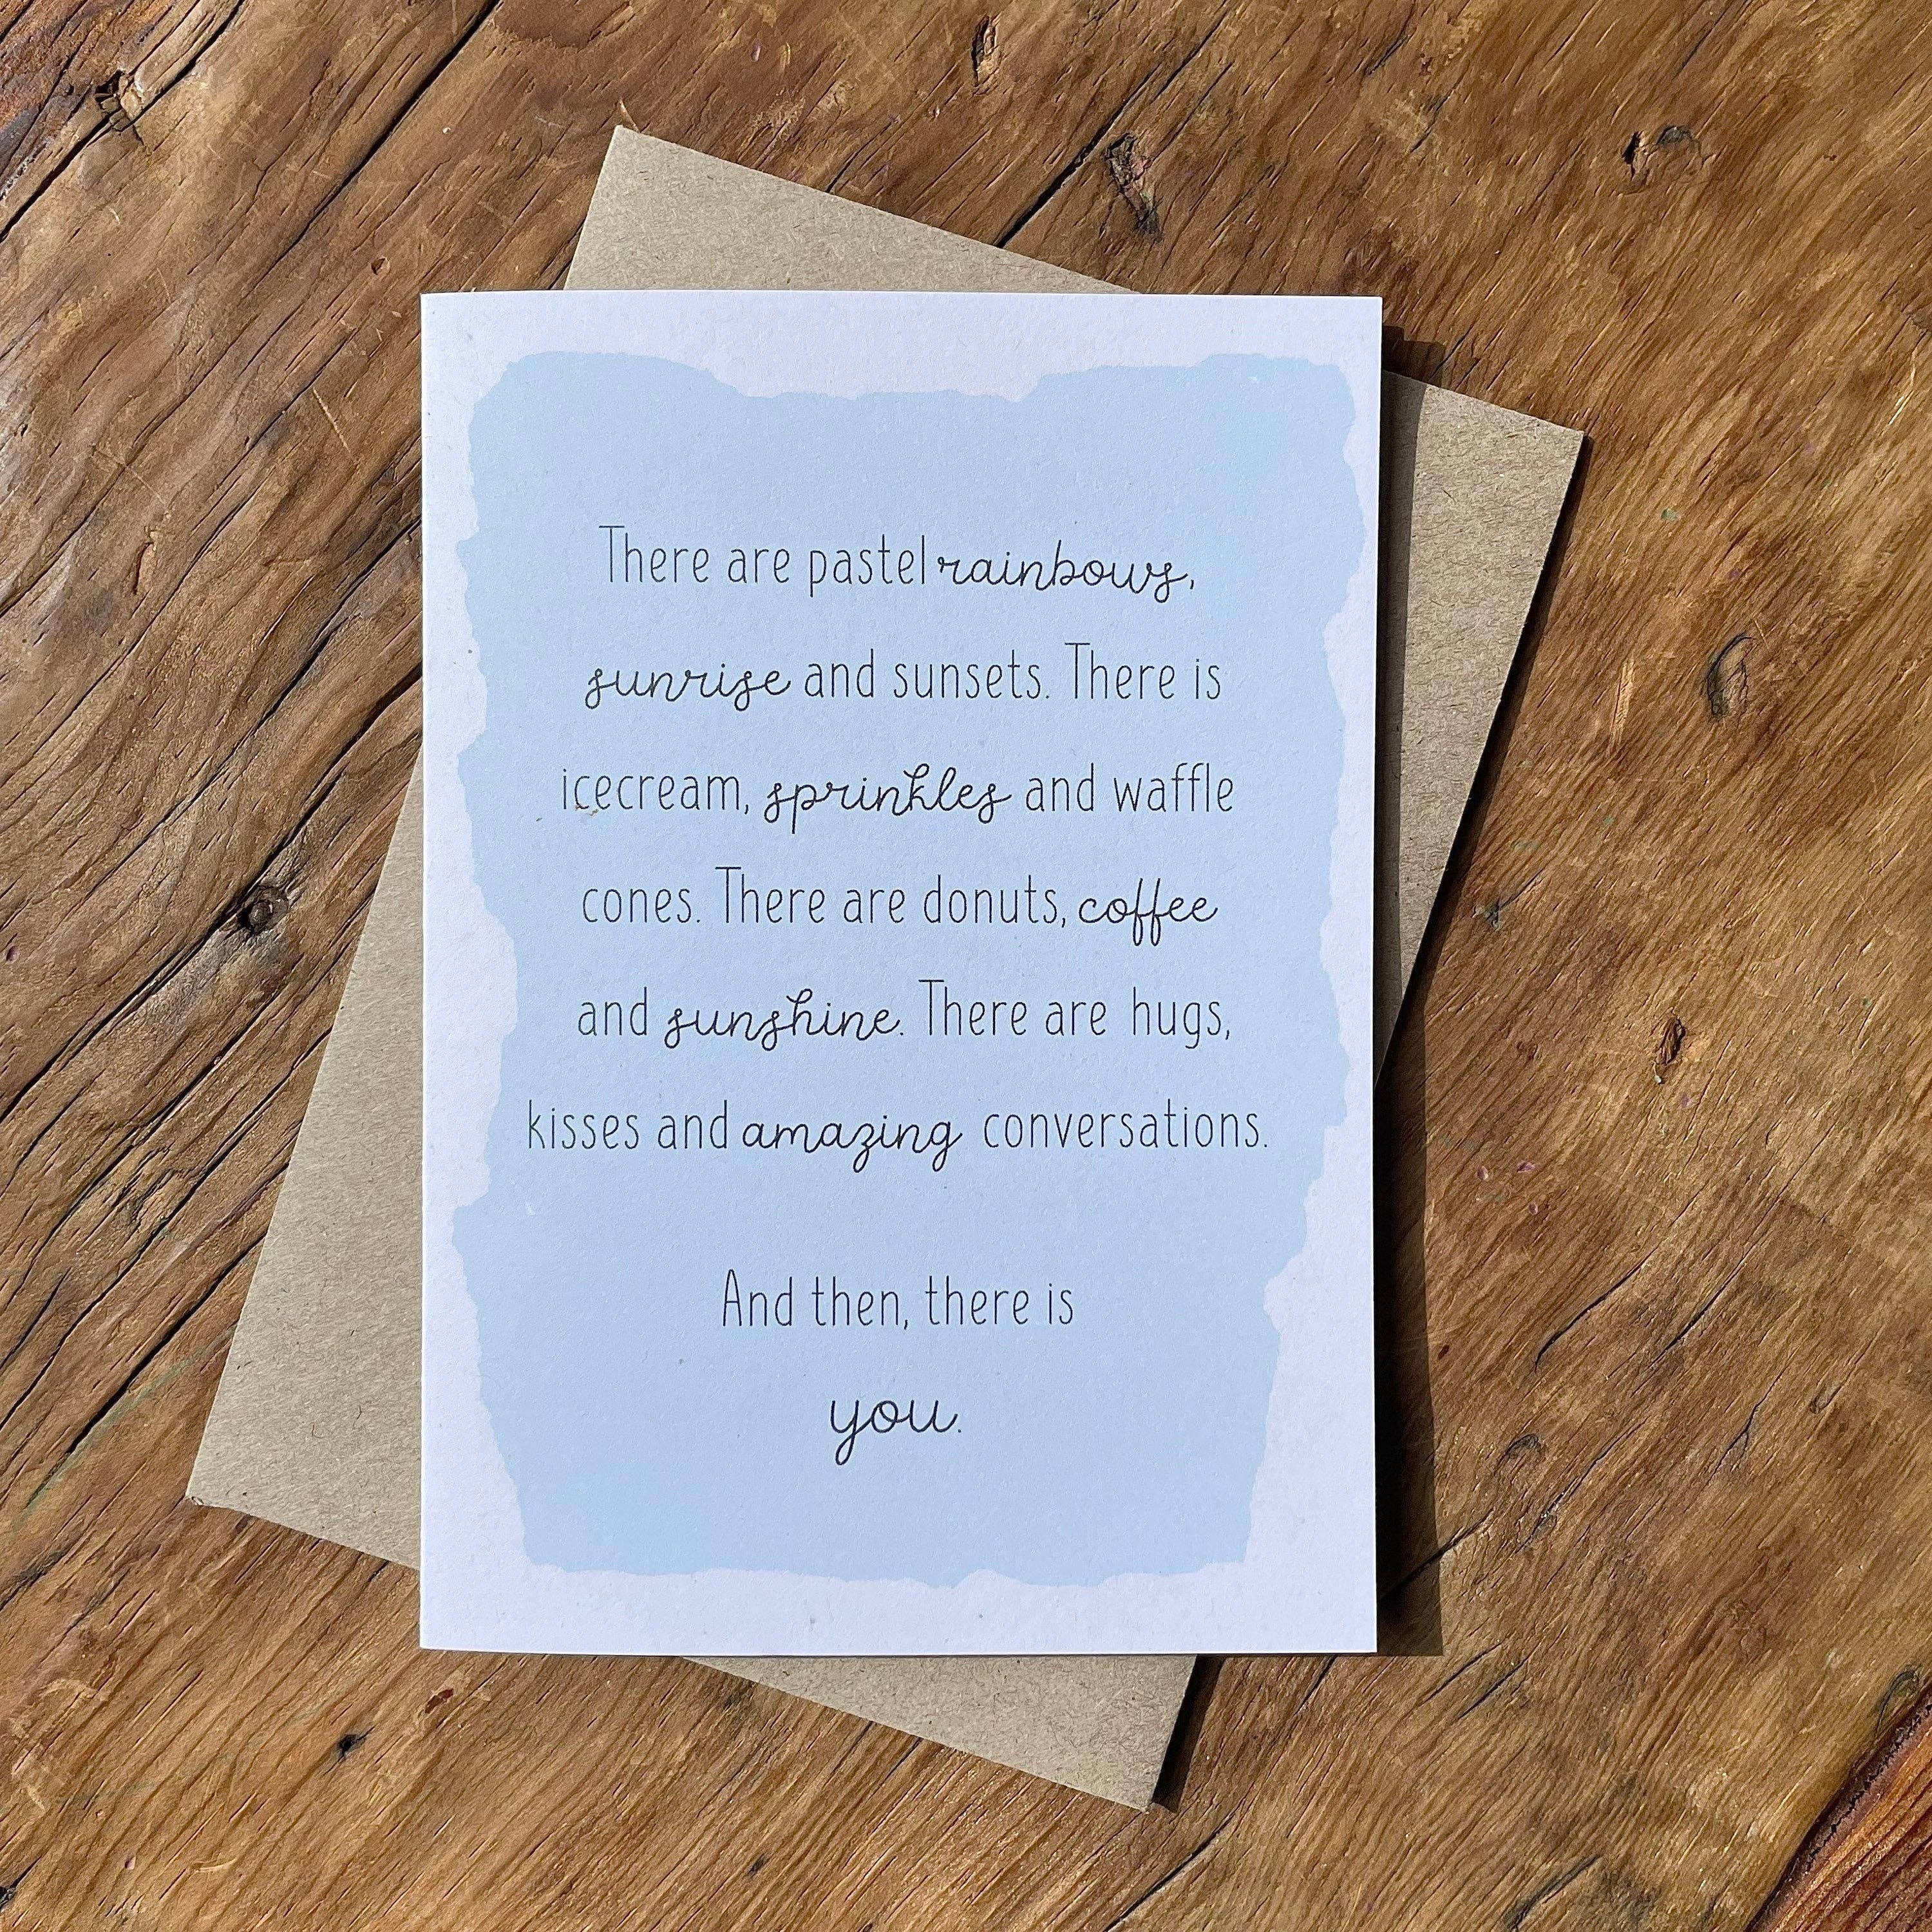 There are pastel rainbows,
sunrise and sunsets. There is
icecream, sprinkles and waffle
cones. There are donuts, coffee
and sunshine. There are hugs,
kisses and amazing conversations.
And then, there is
you.